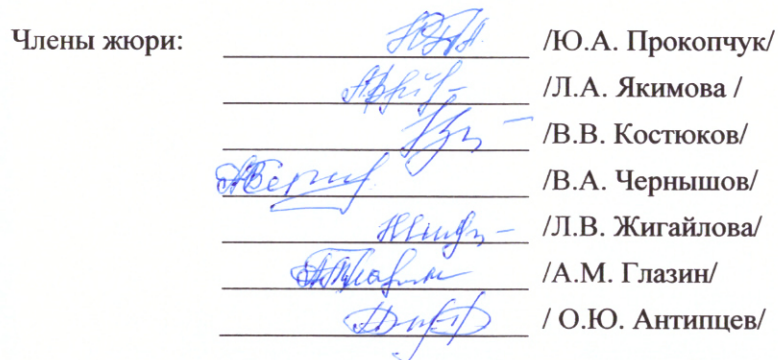 Члены жюри: /Ю.А. Прокопчук/
/Л.А. Якимова /
/В.В. Костюков/
/В.А. Чернышов/
/Л.В. Жигайлова/
/А.М. Глазин/
/ О.Ю. Антипцев/